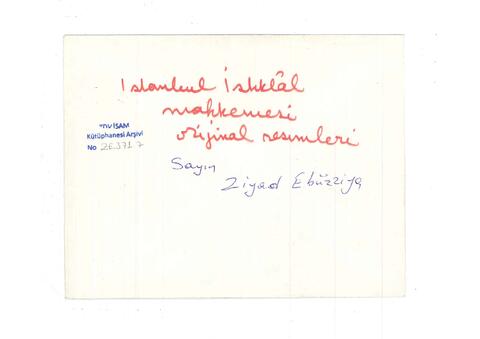 İstanbul İstiklâl
mahkemesi
orijinal resimleri
TDV İSAM
Kütüphanesi Arşivi
No 2E.371 7
Sayın
Ziyad Ebüzziya